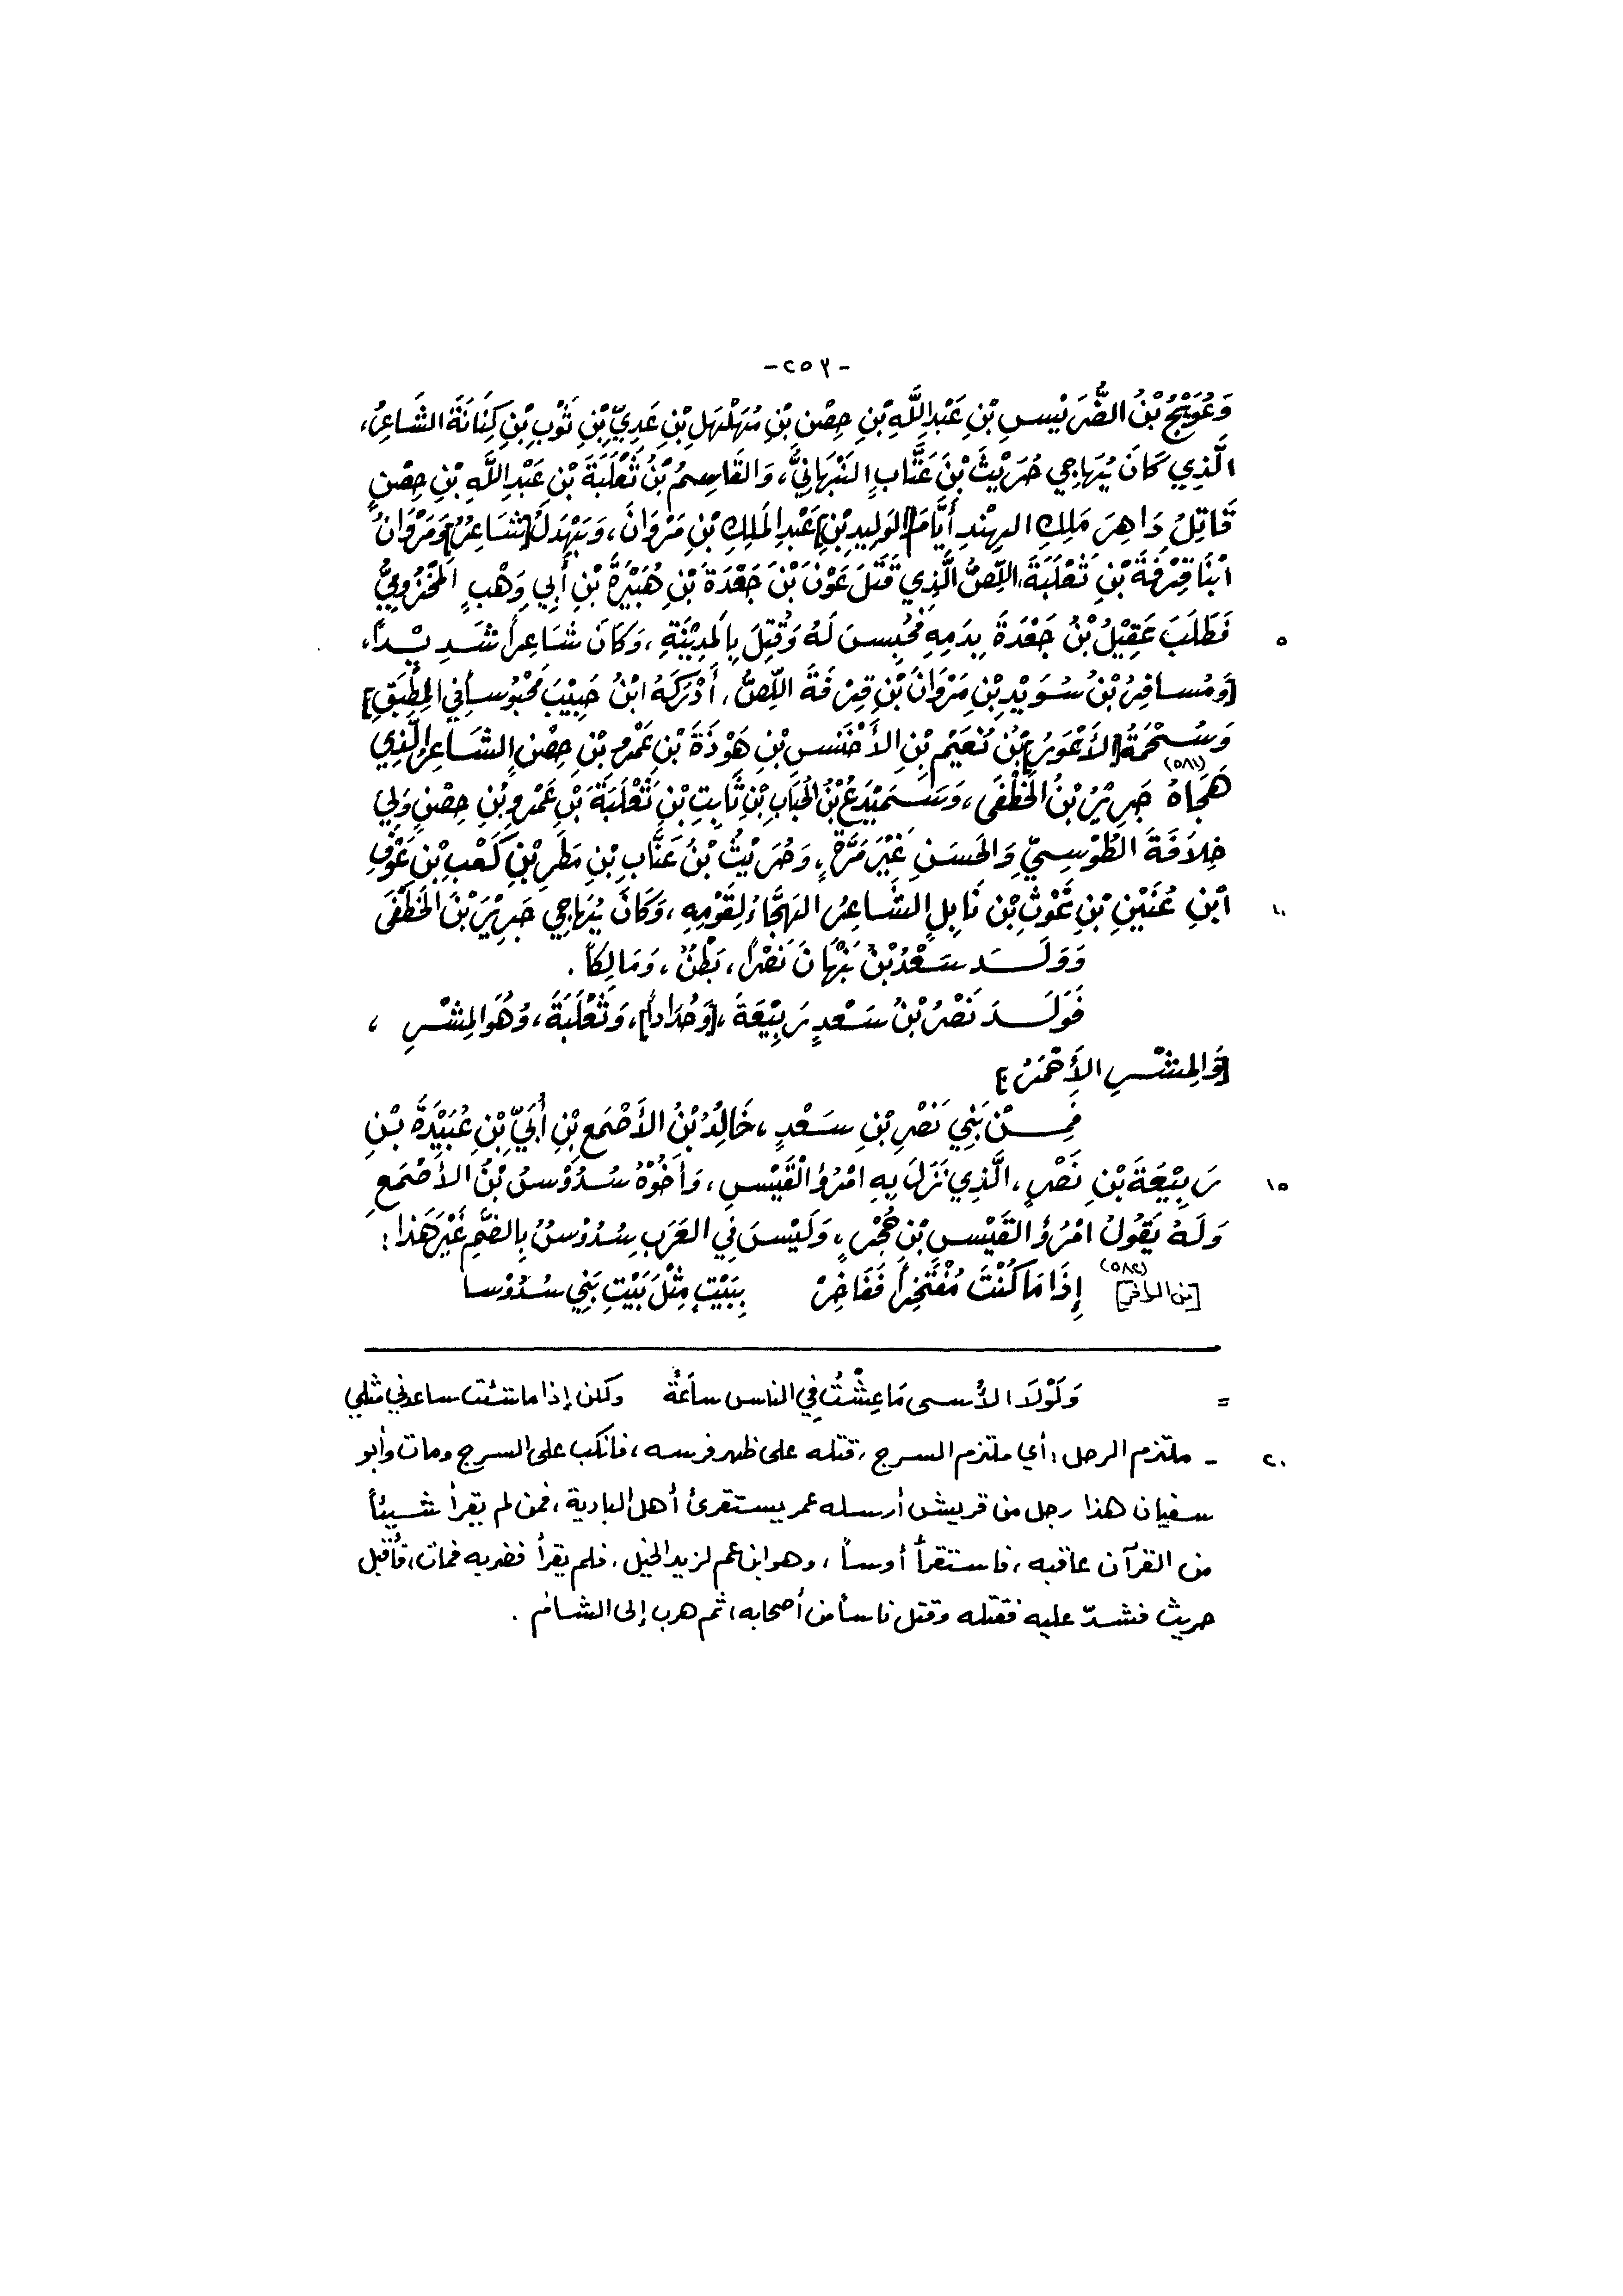 -٢٥٣-
وَعُوَيْجُ بْنُ الضُّرَيْسِ بْنِ عَبْدِ اللَّهِ بْنِ حِصْنِ بْنِ مُهَلْهِلِ بْنِ عَدِيِّ بْنِ ثَوْبِ بْنِ كِنَانَةَ الشَّاعِرُ،
الَّذِي كَانَ يُهَاجِي حُرَيْثَ بْنَ عَتَّابٍ النَّبْهَانِيَّ، وَالقَاسِمُ بْنُ ثَعْلَبَةَ بْنِ عَبْدِ اللَّهِ بْنِ حِصْنٍ
قَاتِلُ دَاهِرَ مَلِكِ الهِنْدِ أَيَّامَ [الوَلِيدِ بْنِ] عَبْدِ المَلِكِ بْنِ مَرْوَانَ، وَبَهْدَلُ [شَاعِرُ] وَمَرْوَانُ
ابْنَا قِرْفَةَ بْنِ ثَعْلَبَةَ، اللِّصُّ الَّذِي قَتَلَ عَوْنَ بْنَ جَعْدَةَ بْنِ هُبَيْرَةَ بْنِ أَبِي وَهْبٍ المَخْزُومِيَّ
٥ فَطَلَبَ عَقِيْلُ بْنُ جَعْدَةَ بِدَمِهِ فَحُبِسَ لَهُ وَقُتِلَ بِالمَدِيْنَةِ، وَكَانَ شَاعِراً شَدِيْداً،
[وَمُسافِرُ بْنُ سُوَيْدِ بْنِ مَرْوَانَ بْنِ قِرْفَةَ اللِّصُّ، أَدْرَكَهُ ابْنُ حَبِيْبَ مَحْبُوساً فِي المِطْبَقِ]
وَسُحْمَةُ [الأَعْوَرُ] بْنُ نُعَيْمِ بْنِ الأَخْنَسِ بْنِ هَوْذَةَ بْنِ عَمْرِو بْنِ حِصْنٍ الشَّاعِرُ الَّذِي
هَجَاهُ (٥٨١) جَرِيْرُ بْنُ الخَطْفَى، وَسَمَيْدَعُ بْنُ الحُبَابِ بْنِ ثَابِتِ بْنِ ثَعْلَبَةَ بْنِ عَمْرِو بْنِ حِصْنٍ وَلِي
خِلاَفَةَ الطُّوْسِيِّ وَالحَسَنِ غَيْرَ مَرَّةٍ، وَحُرَيْثُ بْنُ عَنَّابِ بْنِ مَطَرِ بْنِ كَعْبِ بْنِ عَوْفِ
١٠ ابْنِ عُنَيْنِ بْنِ غَوْثِ بْنِ نَابِلٍ الشَّاعِرُ الهَجَّاءُ لِقَوْمِهِ، وَكَانَ يُهَاجِي جَرِيْرَ بْنَ الخَطَفَى
وَوَلَدَ سَعْدُ بْنُ نَبْهَانَ نَصْراً، بَطْنٌ، وَمَالِكاً.
فَوَلَدَ نَصْرُ بْنُ سَعْدٍ رَبِيْعَةَ، [وَحُدَاداً]، وَثَعْلَبَةَ، وَهُوَ المِشْرِ ،
[وَالمِشْرِ الأَحْمَرُ]
فَمِنْ بَنِي نَصْرِ بْنِ سَعْدٍ، خَالِدُ بْنُ الأَصْمَعِ بْنِ أُبَيِّ بْنِ عُبَيْدَةَ بْنِ
١٥ رَبِيْعَةَ بْنِ نَصْرٍ، الَّذِي نَزَلَ بِهِ امْرُؤُ الْقَيْسِ، وَأَخُوْهُ سُدُوْسُ بْنُ الأَصْمَعِ
وَلَهُ يَقُولُ امْرُؤُ القَيْسِ بْنِ حُجْرٍ، وَلَيْسَ فِي العَرَبِ سُدُوْسُ بِالضَّمِ غَيْرَ هَذَا:
[من الوافر] (٥٨٢) إِذَا مَا كُنْتَ مُفْتَخِراً فَفَاخِرْ بِبَيْتٍ مِثْلَ بَيْتِ بَنِي سُدُوْسا
= وَلَوْلاَ الأُسى مَا عِشْتُ فِي الناس ساعَةً ولكن إذا ما شئت ساعدني مثلي
٢٠ - ملتزم الرحل: أي ملتزم السرج، قتله على ظهر فرسه، فانكب على السرج ومات وأبو
سفيان هذا رجل من قريش أرسله عمر يستقرئ أهل البادية، فمن لم يقرأ شيئاً
من القرآن عاقبه، فاستقرأ أوساً، وهو ابن عم لزيد الخيل، فلم يقرأ فضربه فمات، فأقبل
حريث فشدّ عليه فقتله وقتل ناساً من أصحابه، ثم هرب إلى الشام .